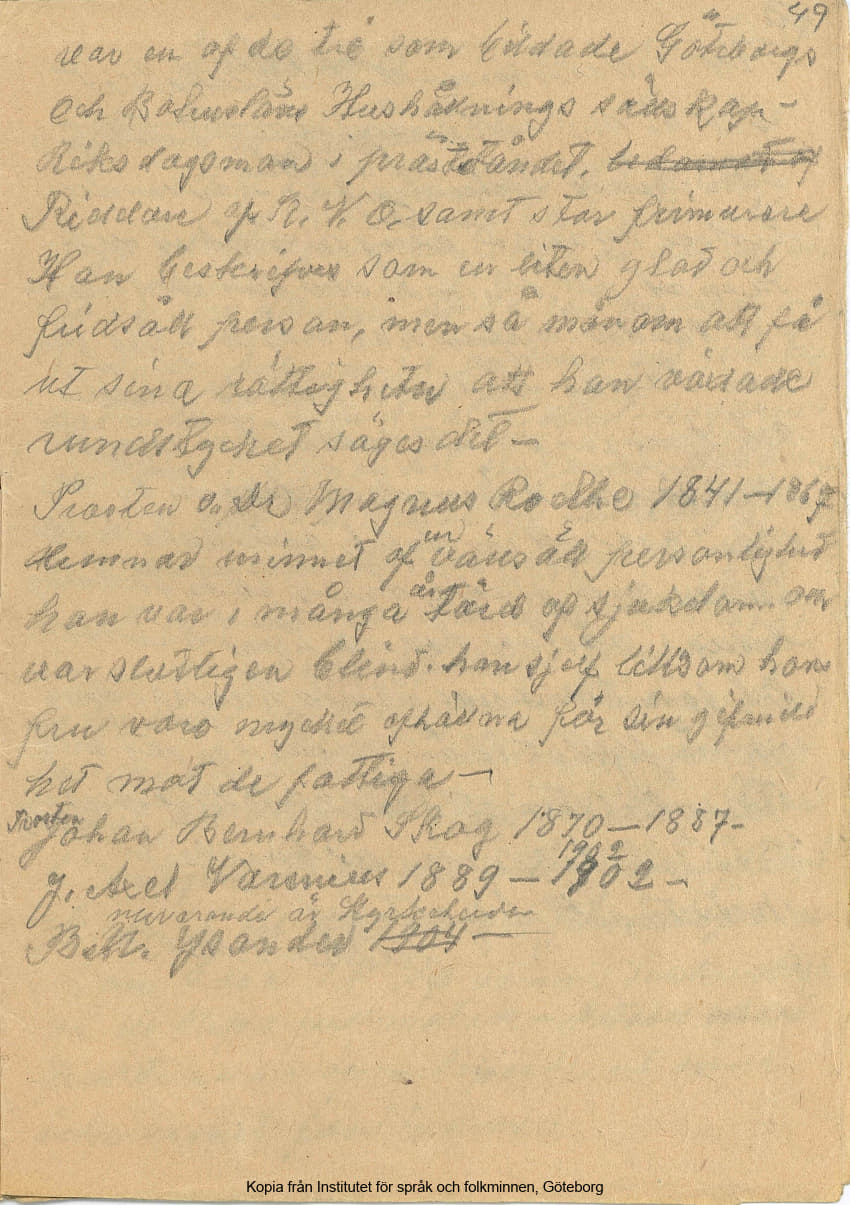 49
var en af de tre som bildade Göteborgs
och Bohusläns Hushållnings sällskap –
Riksdagsman i prästståndet.
Riddare af K. V. O. samt stor frimurare
Han beskrifves som en liten glad och
fridsäll person, men så mån om att få
ut sina rättigheter att han vädade
rundstycket säges det –
Prosten o. Dr Magnus Rodhe 1841–1867
lemnad minnet af en vänsäll personlighet
han var i många år tärd af sjukdom och
var slutligen blind. han sjelf liksom hans
fru voro mycket afhållna för sin gifmild
het mot de fattiga –
Prosten Johan Bernhard Skog 1870–1887–
1902
J. Axel Varenius 1889 – 1902 –
nuvarande är Kyrkoherden
B. M. Ysander 1904 –
Kopia från Institutet för språk och folkminnen, Göteborg